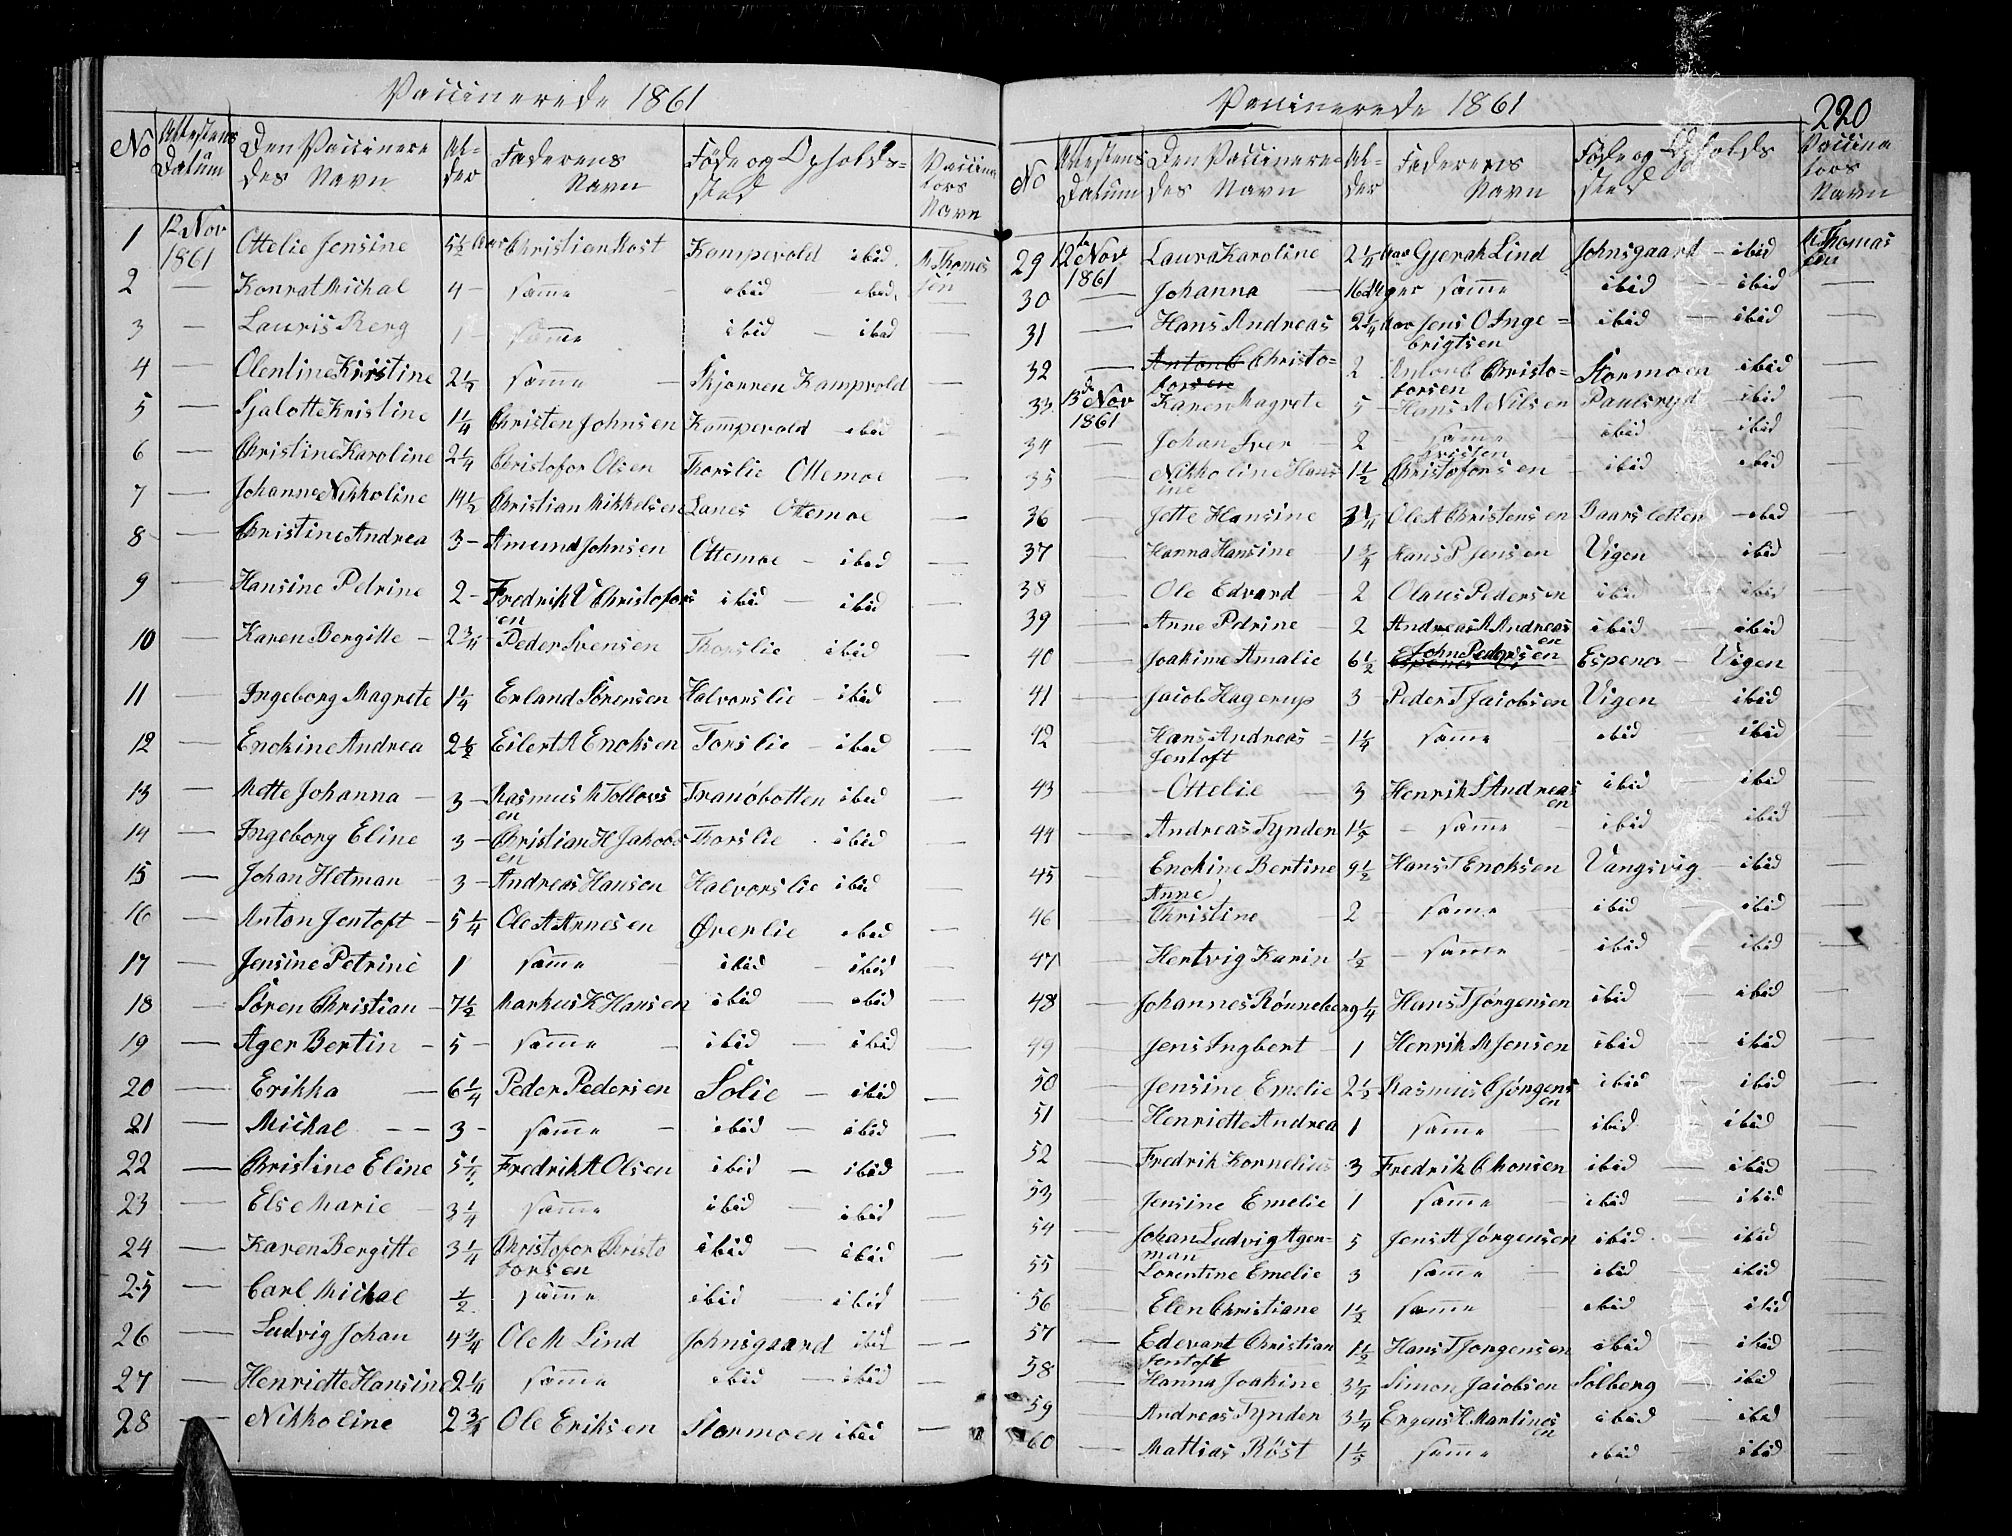 Vaccinerede 1861
No Attestens Datum Den Vaccineredes Navn Alder Faderens Navn Føde og Opholdssted Vaccinators Navn
1 12 Nov 1861 Ottelie Jensine 5½ Aar Christian Rost Kampevold ibid M Thomassen
2 — Konrat Michal 4 — samme ibid ibid —
3 — Lauris Berg 1 — samme ibid — ibid —
4 — Olentine Kristine samme — Kampvold —
5 — Sjalotte Kristine 1¼ Christen Johnsen Kampevold ibid —
6 — Christine Karoline 2¼ Christofor Olsen Thorslie Ottemoe —
7 — Johanne Nikkoline 14½ Christian Mikkelsen Lanes Ottemoe —
8 — Christine Andrea 3 — Amund Johnsen Ottemoe — ibid —
9 — Hansine Petrine 2 — Fredrik C Christoforsen ibid — ibid —
10 — Karen Bergitte — 2¾ Peder Svensen Thorslie ibid —
11 — Ingeborg Magrete 1¼ Erland Sørensen Halvorslie — ibid —
12 — Enokine Andrea 2½ Eilert A Enoksen Torslie — ibid —
13 — Mette Johanna — 3 — Rasmus M Tollovsen Tranöbotten ibid —
14 — Ingeborg Eline 3 — Christian H Jakobsen Thorslie ibid —
15 — Johan Hetman — 3 — Andreas Hansen Halvorslie ibid —
16 — Anton Jentoft — 5¼ Ole A Arnesen Øverlie ibid —
17 — Jensine Petrine 1 samme — ibid — ibid —
18 — Søren Christian — 7½ Markus K Hansen ibid — ibid —
19 — Ager Bertin — 5 — samme — ibid — ibid —
20 — Erikka — 6¼ Peder Pedersen Solie — ibid —
21 — Michal — — 3 — samme — ibid — ibid —
22 — Christine Eline 5¼ Fredrik A Olsen ibid — ibid —
23 — Else Marie — 3¼ samme ibid — ibid —
24 — Karen Bergitte 3¼ Christofor Christoforsen ibid — ibid —
25 — Carl Michal ½ samme ibid — ibid —
26 — Ludvig Johan 4¾ Ole M Lind Johnsgaard ibid — —
27 — Henriette Hansine 2¼ samme ibid — ibid —
28 — Nikkoline 2¾ Ole Eriksen Stormoen ibid —
Vaccinerede 1861
220
No Attestens Datum Den Vaccineredes Navn Alder Faderens Navn Føde og Opholdssted Vaccinators Navn
29 12te Nov 1861 Laura Karoline 2¼ Aar Gjerak Lind Johnsgaard — ibid M Thomassen
30 — Johanna — samme ibid — ibid —
31 — Hans Andreas 2¼ Aar Jens O Ingebrigtsen ibid — ibid —
32 — Anton C Christoforsen 2 Anton C Christoforsen Stormoen ibid —
33 13d Nov 1861 Karen Magrete 5 — Hans A Nilsen ibid —
34 — Johan Iver 2 — samme ibid — ibid —
35 — Nikkoline Hansine 1½ Christoforsen — ibid ibid —
36 — Jette Hansine 3¼ Ole A Christensen Baarsletten — ibid —
37 — Hanna Hansine — 1¾ Hans P Jensen Vigen ibid —
38 — Ole Edvard — 2 Olaus Pedersen ibid — ibid —
39 — Anne Petrine — 2 Andreas A Andreasen ibid — ibid —
40 — Joakime Amalie 6½ John Pedersen Espenes — Vigen —
41 — Jacob Hagerup 3 Peder T Jacobsen Vigen — ibid —
42 — Hans Andreas Jentoft 1¼ samme — ibid — ibid —
43 — Ottelie — 3 Henrik S Andreasen ibid — ibid —
44 — Andreas Tynder — samme — ibid ibid —
45 — Enokine Bertine 9½ Hans T Enoksen Vangsvig — ibid —
46 — Anne Christine — 2 — samme — ibid — ibid —
47 — Hertvig Karin ½ — samme — ibid — ibid —
48 — Johannes Rönneberg 9¼ Hans T Jörgensen ibid — ibid —
49 — Jens Ingbert — 1 Henrik A Jensen ibid — ibid —
50 — Jensine Emelie Rasmus C Jörgensen ibid — ibid —
51 — Henriette Andrea 1 samme — ibid — ibid —
52 — Fredrik Kornelius 3 Fredrik Chonsen ibid — ibid —
53 — Jensine Emelie 1 samme — ibid — ibid —
54 — Johan Ludvig Agerman 5 Jens A Jørgensen ibid — ibid —
55 — Lorentine Emelie 3 samme — ibid — ibid —
56 — Elen Christiane 1½ samme — ibid ibid —
57 — Edevart Christian Jentoft 1½ Hans T Jorgensen ibid — ibid —
58 — Hanna Joakine Simon Jacobsen Solberg ibid —
59 — Andreas Tynder 3¼ A Martinesen ibid — ibid —
60 — Mattias Röst samme ibid — ibid —